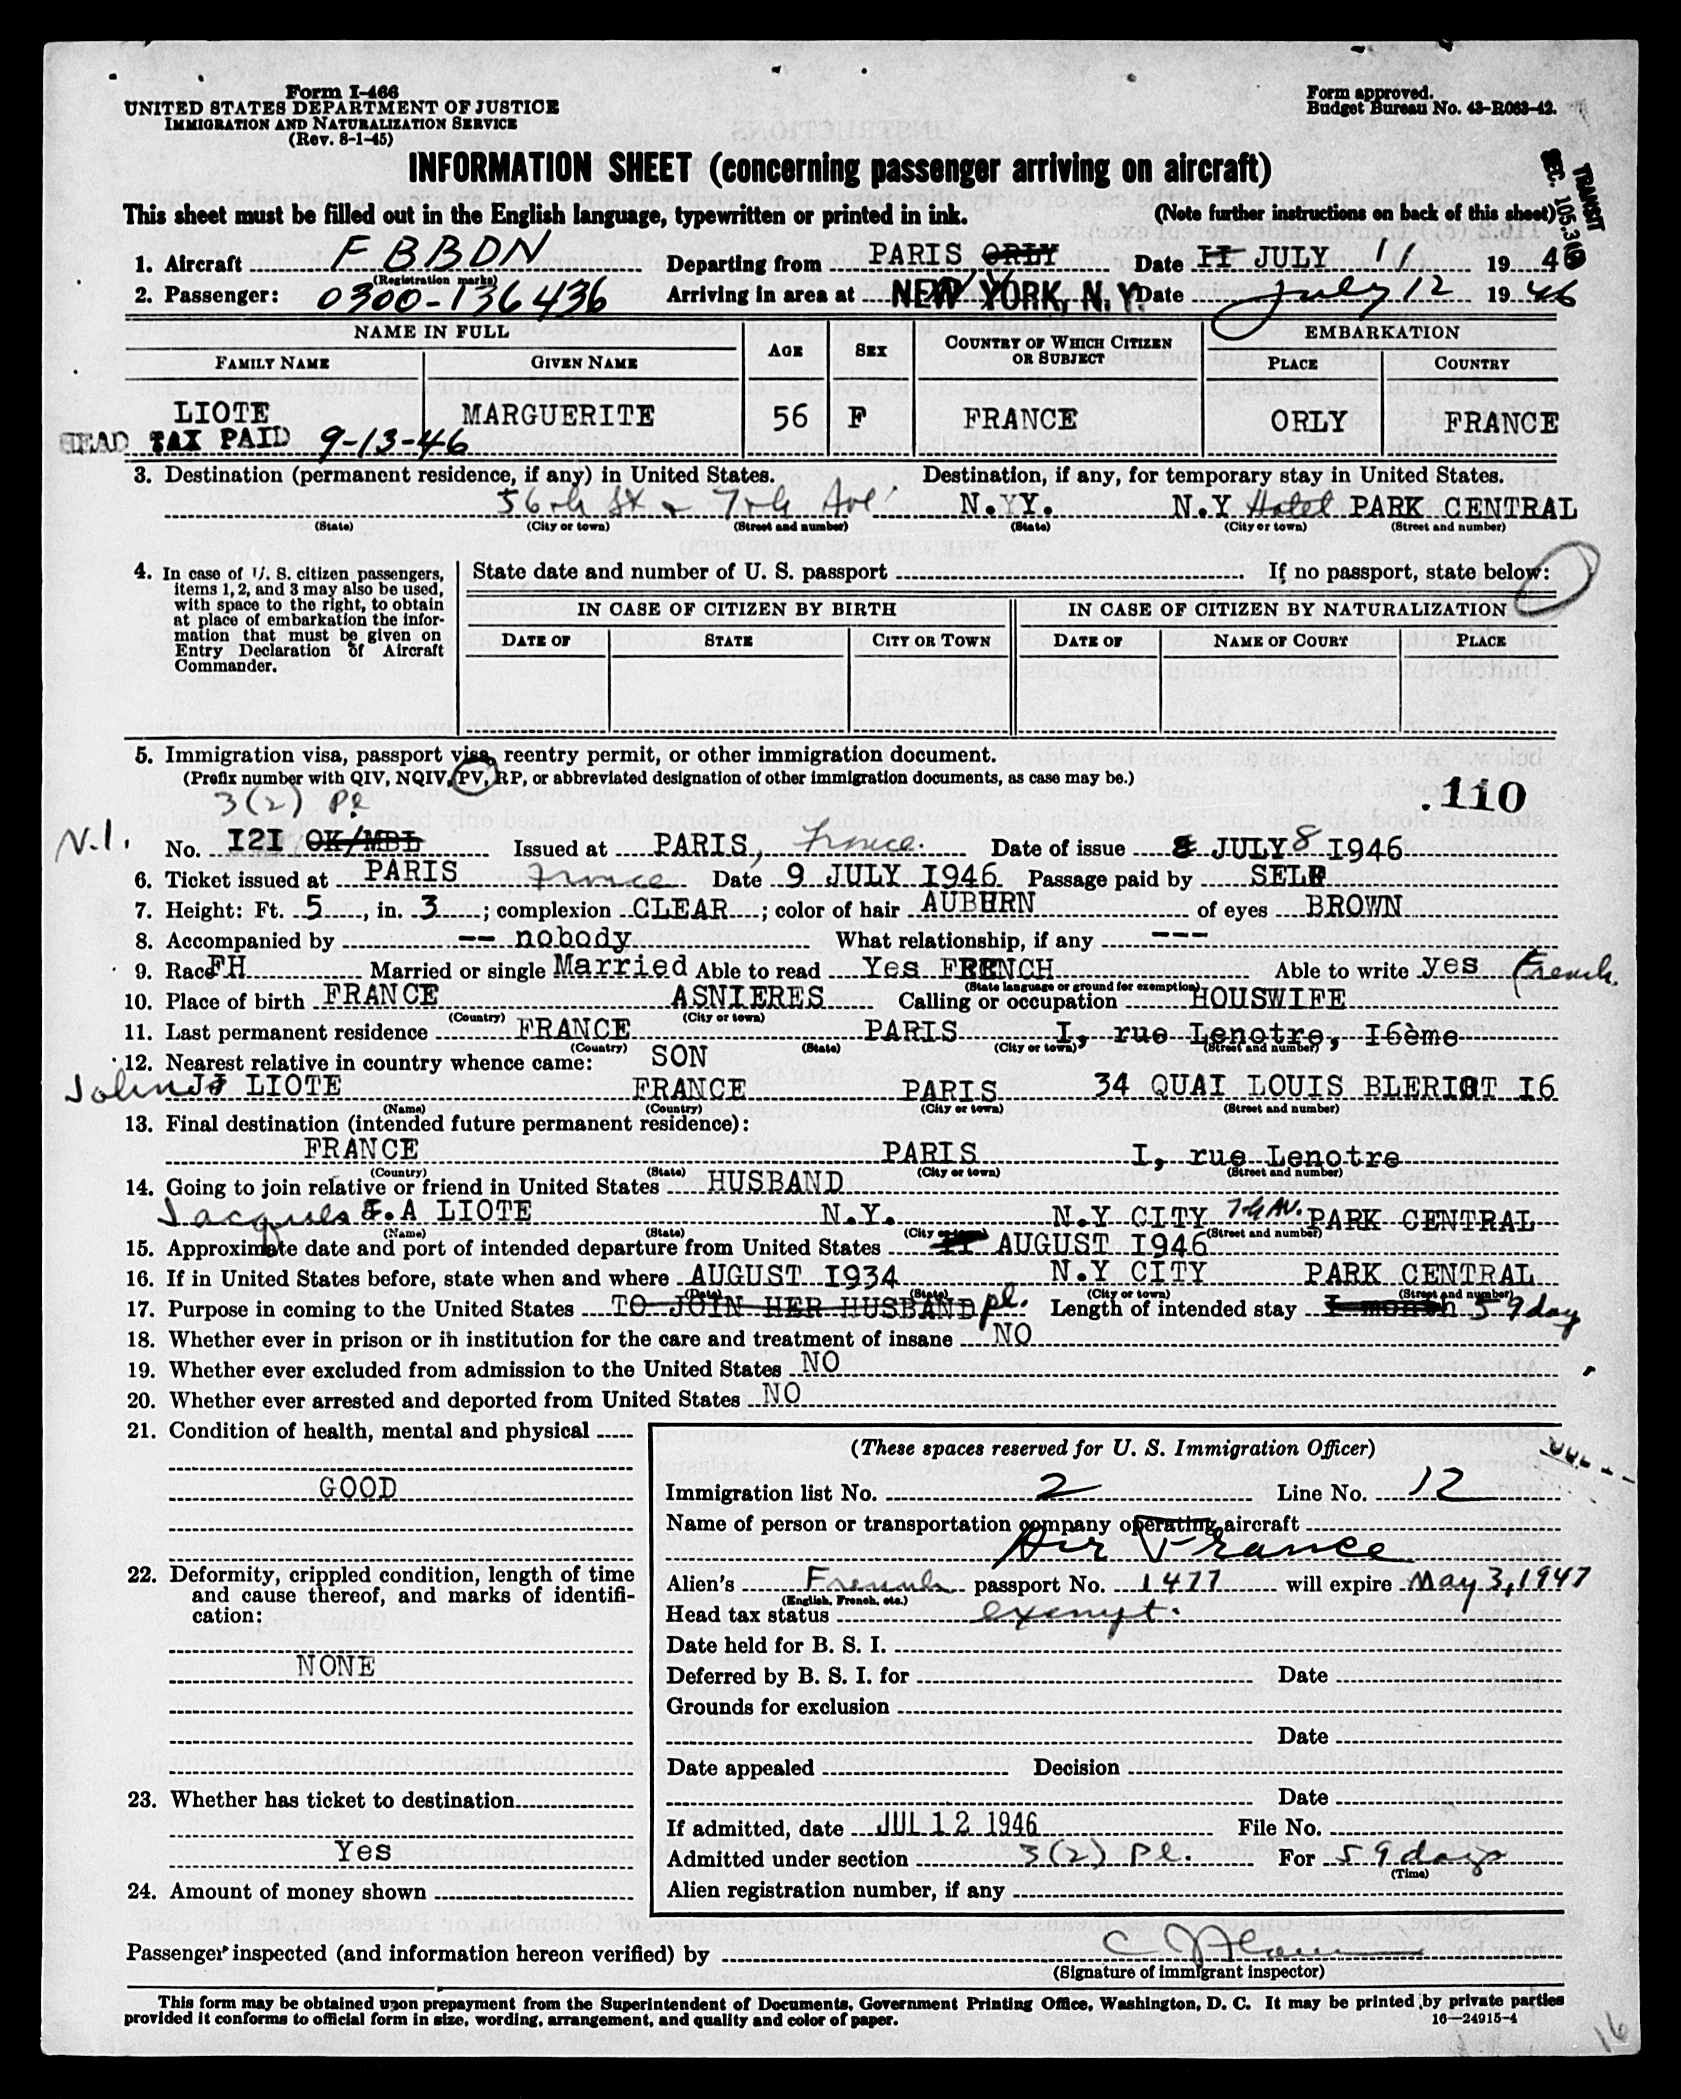 Form I-466
UNITED STATES DEPARTMENT OF JUSTICE
IMMIGRATION AND NATURALIZATION SERVICE
(Rev. 8-1-45)
Form approved.
Budget Bureau No. 43-R063-42.
INFORMATION SHEET (concerning passenger arriving on aircraft)
TRANSIT
SEC. 105.3(
This sheet must be filled out in the English language, typewritten or printed in ink. (Note further instructions on back of this sheet)
1. Aircraft F BBDN Departing from PARIS ORLY Date II JULY 11 1946
(Registration marks)
2. Passenger: 0300-136436 Arriving in area at NEW YORK, N.Y. Date July 12 1946
NAME IN FULL AGE SEX COUNTRY OF WHICH CITIZEN OR SUBJECT EMBARKATION
FAMILY NAME GIVEN NAME PLACE COUNTRY
LIOTE MARGUERITE 56 F FRANCE ORLY FRANCE
HEAD TAX PAID 9-13-46
3. Destination (permanent residence, if any) in United States. Destination, if any, for temporary stay in United States.
56th St & 7th Ave N.Y. N.Y Hotel PARK CENTRAL
(State) (City or town) (Street and number) (State) (City or town) (Street and number)
4. In case of U. S. citizen passengers, items 1, 2, and 3 may also be used, with space to the right, to obtain at place of embarkation the information that must be given on Entry Declaration of Aircraft Commander.
State date and number of U. S. passport If no passport, state below:
IN CASE OF CITIZEN BY BIRTH IN CASE OF CITIZEN BY NATURALIZATION
DATE OF STATE CITY OR TOWN DATE OF NAME OF COURT PLACE
5. Immigration visa, passport visa, reentry permit, or other immigration document.
(Prefix number with QIV, NQIV, PV, RP, or abbreviated designation of other immigration documents, as case may be.)
3(2) Pl .110
N.I. No. I2I OK/MBL Issued at PARIS, France. Date of issue 8 JULY 8 I946
6. Ticket issued at PARIS France Date 9 JULY I946 Passage paid by SELF
7. Height: Ft. 5, in. 3; complexion CLEAR; color of hair AUBURN of eyes BROWN
8. Accompanied by -- nobody What relationship, if any ---
9. Race FH Married or single Married Able to read Yes FRENCH Able to write yes French.
(State language or ground for exemption)
10. Place of birth FRANCE ASNIERES Calling or occupation HOUSWIFE
(Country) (City or town)
11. Last permanent residence FRANCE PARIS I, rue Lenotre, I6ème
(Country) (State) (City or town) (Street and number)
12. Nearest relative in country whence came: SON
John LIOTE FRANCE PARIS 34 QUAI LOUIS BLERIOT I6
(Name) (Country) (City or town) (Street and number)
13. Final destination (intended future permanent residence):
FRANCE PARIS I, rue Lenotre
(Country) (State) (City or town) (Street and number)
14. Going to join relative or friend in United States HUSBAND
Jacques E.A LIOTE N.Y. N.Y CITY 7th AV. PARK CENTRAL
(Name) (State) (City or town) (Street and number)
15. Approximate date and port of intended departure from United States AUGUST I946
16. If in United States before, state when and where AUGUST I934 N.Y CITY PARK CENTRAL
(Date) (State) (City or town) (Street and number)
17. Purpose in coming to the United States TO JOIN HER HUSBAND pl. Length of intended stay I month 59 day
18. Whether ever in prison or in institution for the care and treatment of insane NO
19. Whether ever excluded from admission to the United States NO
20. Whether ever arrested and deported from United States NO
21. Condition of health, mental and physical
GOOD
22. Deformity, crippled condition, length of time and cause thereof, and marks of identification:
NONE
23. Whether has ticket to destination
Yes
24. Amount of money shown
(These spaces reserved for U. S. Immigration Officer)
Immigration list No. 2 Line No. 12
Name of person or transportation company operating aircraft
Air France
Alien's French passport No. 1477 will expire May 3, 1947
(English, French, etc.)
Head tax status exempt.
Date held for B. S. I.
Deferred by B. S. I. for Date
Grounds for exclusion
Date
Date appealed Decision
Date
If admitted, date JUL 12 1946 File No.
Admitted under section 3(2) Pl. For 59 days
(Time)
Alien registration number, if any
Passenger inspected (and information hereon verified) by
(Signature of immigrant inspector)
This form may be obtained upon prepayment from the Superintendent of Documents, Government Printing Office, Washington, D. C. It may be printed by private parties
provided it conforms to official form in size, wording, arrangement, and quality and color of paper.
16—24915-4
16